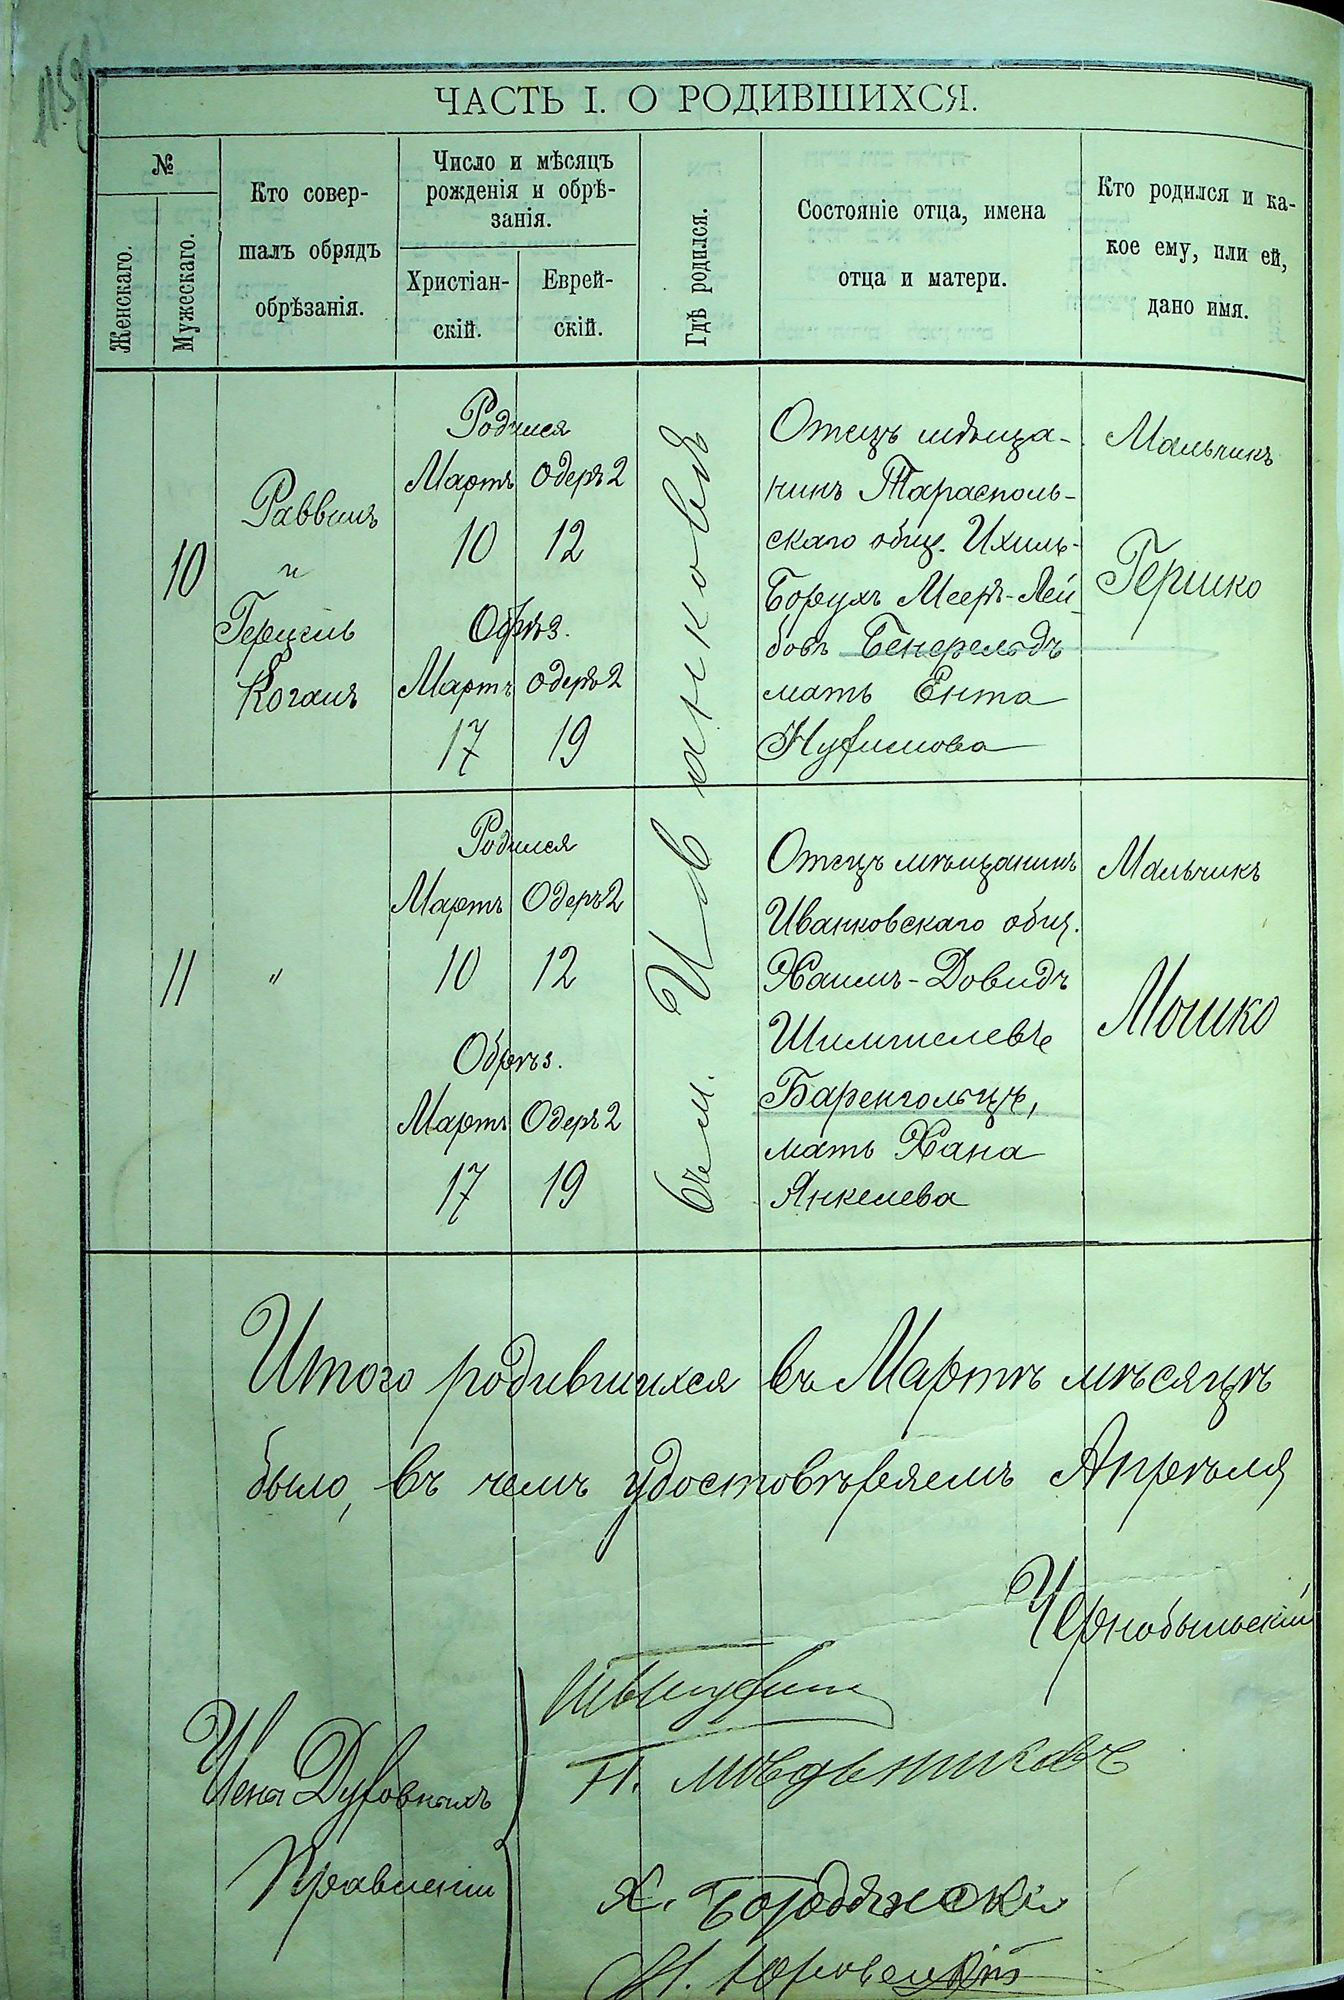 ЧАСТЬ I. О РОДИВШИХСЯ.
№
Женскаго.
Мужескаго.
Кто совер-
шалъ обрядъ
обрѣзанія.
Число и мѣсяцъ
рожденія и обрѣ-
занія.
Христіан-
скій.
Еврей-
скій.
Гдѣ родился.
Состояніе отца, имена
отца и матери.
Кто родился и ка-
кое ему, или ей,
дано имя.
10
Раввинъ
и
Герцель
Коганъ
Родился
Мартъ Одеръ 2
10 12
Обрѣз.
Мартъ Одеръ 2
17 19
въ м. Иванковѣ
Отецъ мѣща-
нинъ Тарасполь-
скаго общ. Ихиль-
Борухъ Мееръ-Лей-
бовъ
мать Ента
Нухимова
Мальчикъ
Гершко
11
"
Родился
Мартъ Одеръ 2
10 12
Обрѣз.
Мартъ Одеръ 2
17 19
Отецъ мѣщанинъ
Иванковскаго общ.
Хаимъ-Довидъ
Шимшелевъ
Баренгольцъ,
мать Хана
Янкелева
Мальчикъ
Мошко
Итого родившихся въ Мартѣ мѣсяцѣ
было, въ чемъ удостовѣряемъ Апрѣля
Чернобыльскій
Члены Духовныхъ
Правленій
П. Мѣдьниковъ
Х. Бородянскій